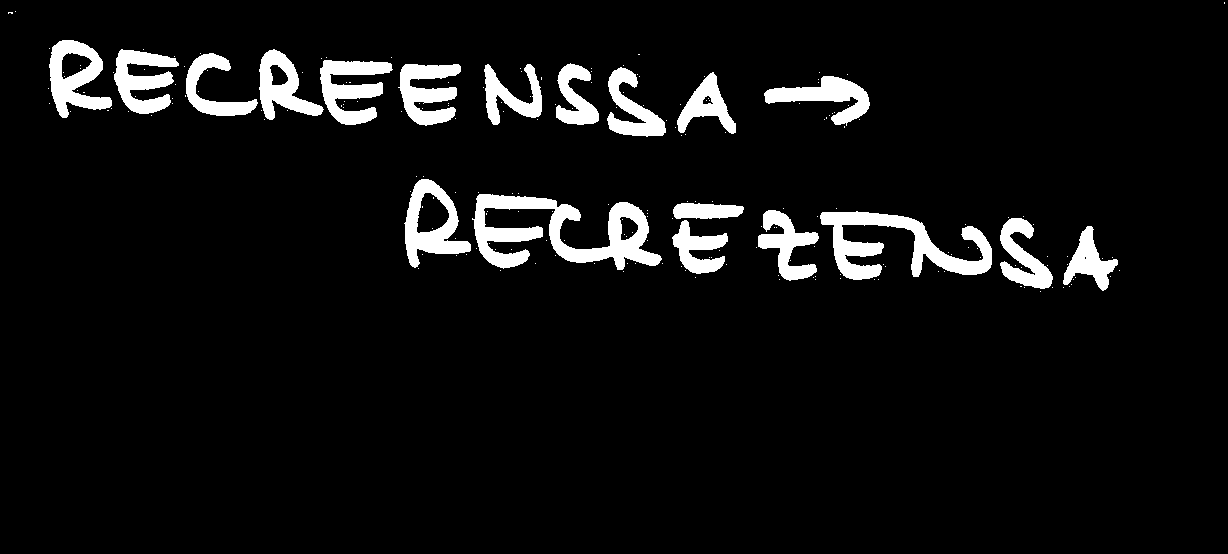 RECREENSSA →
RECREZENSA